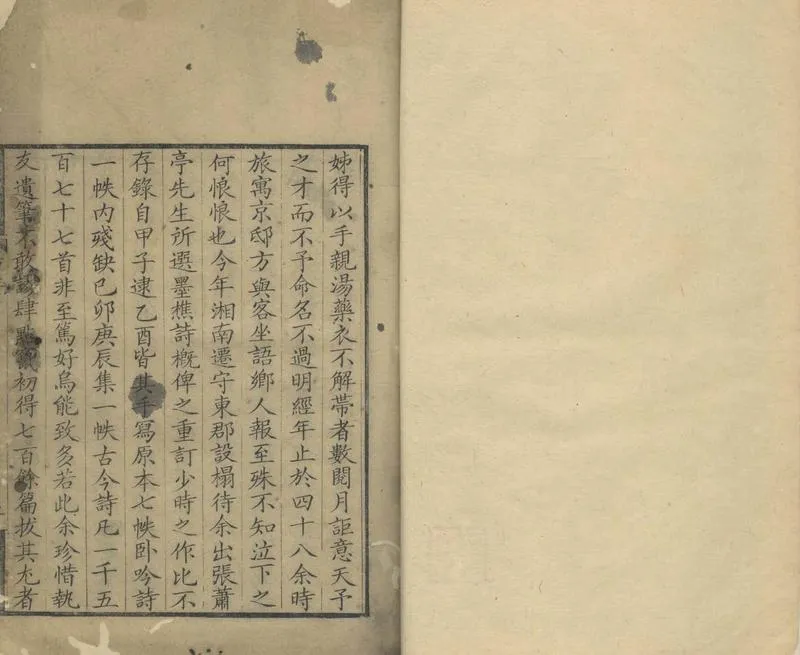 姊得以手親湯藥衣不解帯者數閱月詎意天予
之才而不予命名不過明經年止於四十八余時
旅寓京邸方與客坐語鄉人報至殊不知泣下之
何悢悢也今年湘南遷守東郡設榻待余出張蕭
亭先生所選墨樵詩概俾之重訂少時之作比不
存錄自甲子逮乙酉皆其手寫原本七帙卧吟詩
一帙内殘缺已卯庚辰集一帙古今詩凡一千五
百七十七首非至篤好烏能致多若此余珍惜執
友遺筆不敢肆點初得七百餘篇拔其尤者